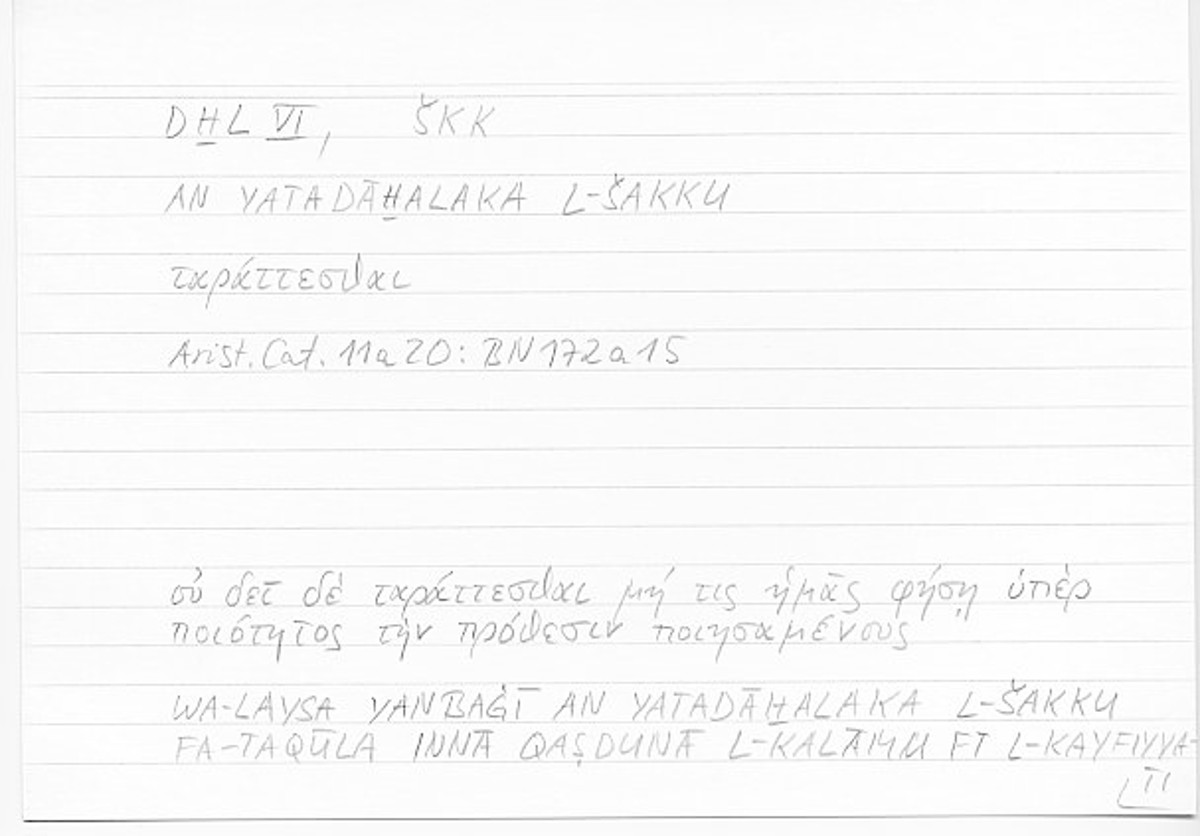 DH̲L VI, ŠKK
AN YATADĀH̲ALAKA L-ŠAKKU
ταράττεσθαι
Arist. Cat. 11a20: BN172a15
οὐ δεῖ δὲ ταράττεσθαι μή τις ἡμᾶς φήσῃ ὑπὲρ
ποιότητος τὴν πρόθεσιν ποιησαμένους
WA-LAYSA YANBAĠĪ AN YATADĀH̲ALAKA L-ŠAKKU
FA-TAQŪLA INNĀ QAṢDUNĀ L-KALĀMU FĪ L-KAYFIYYA-
TI